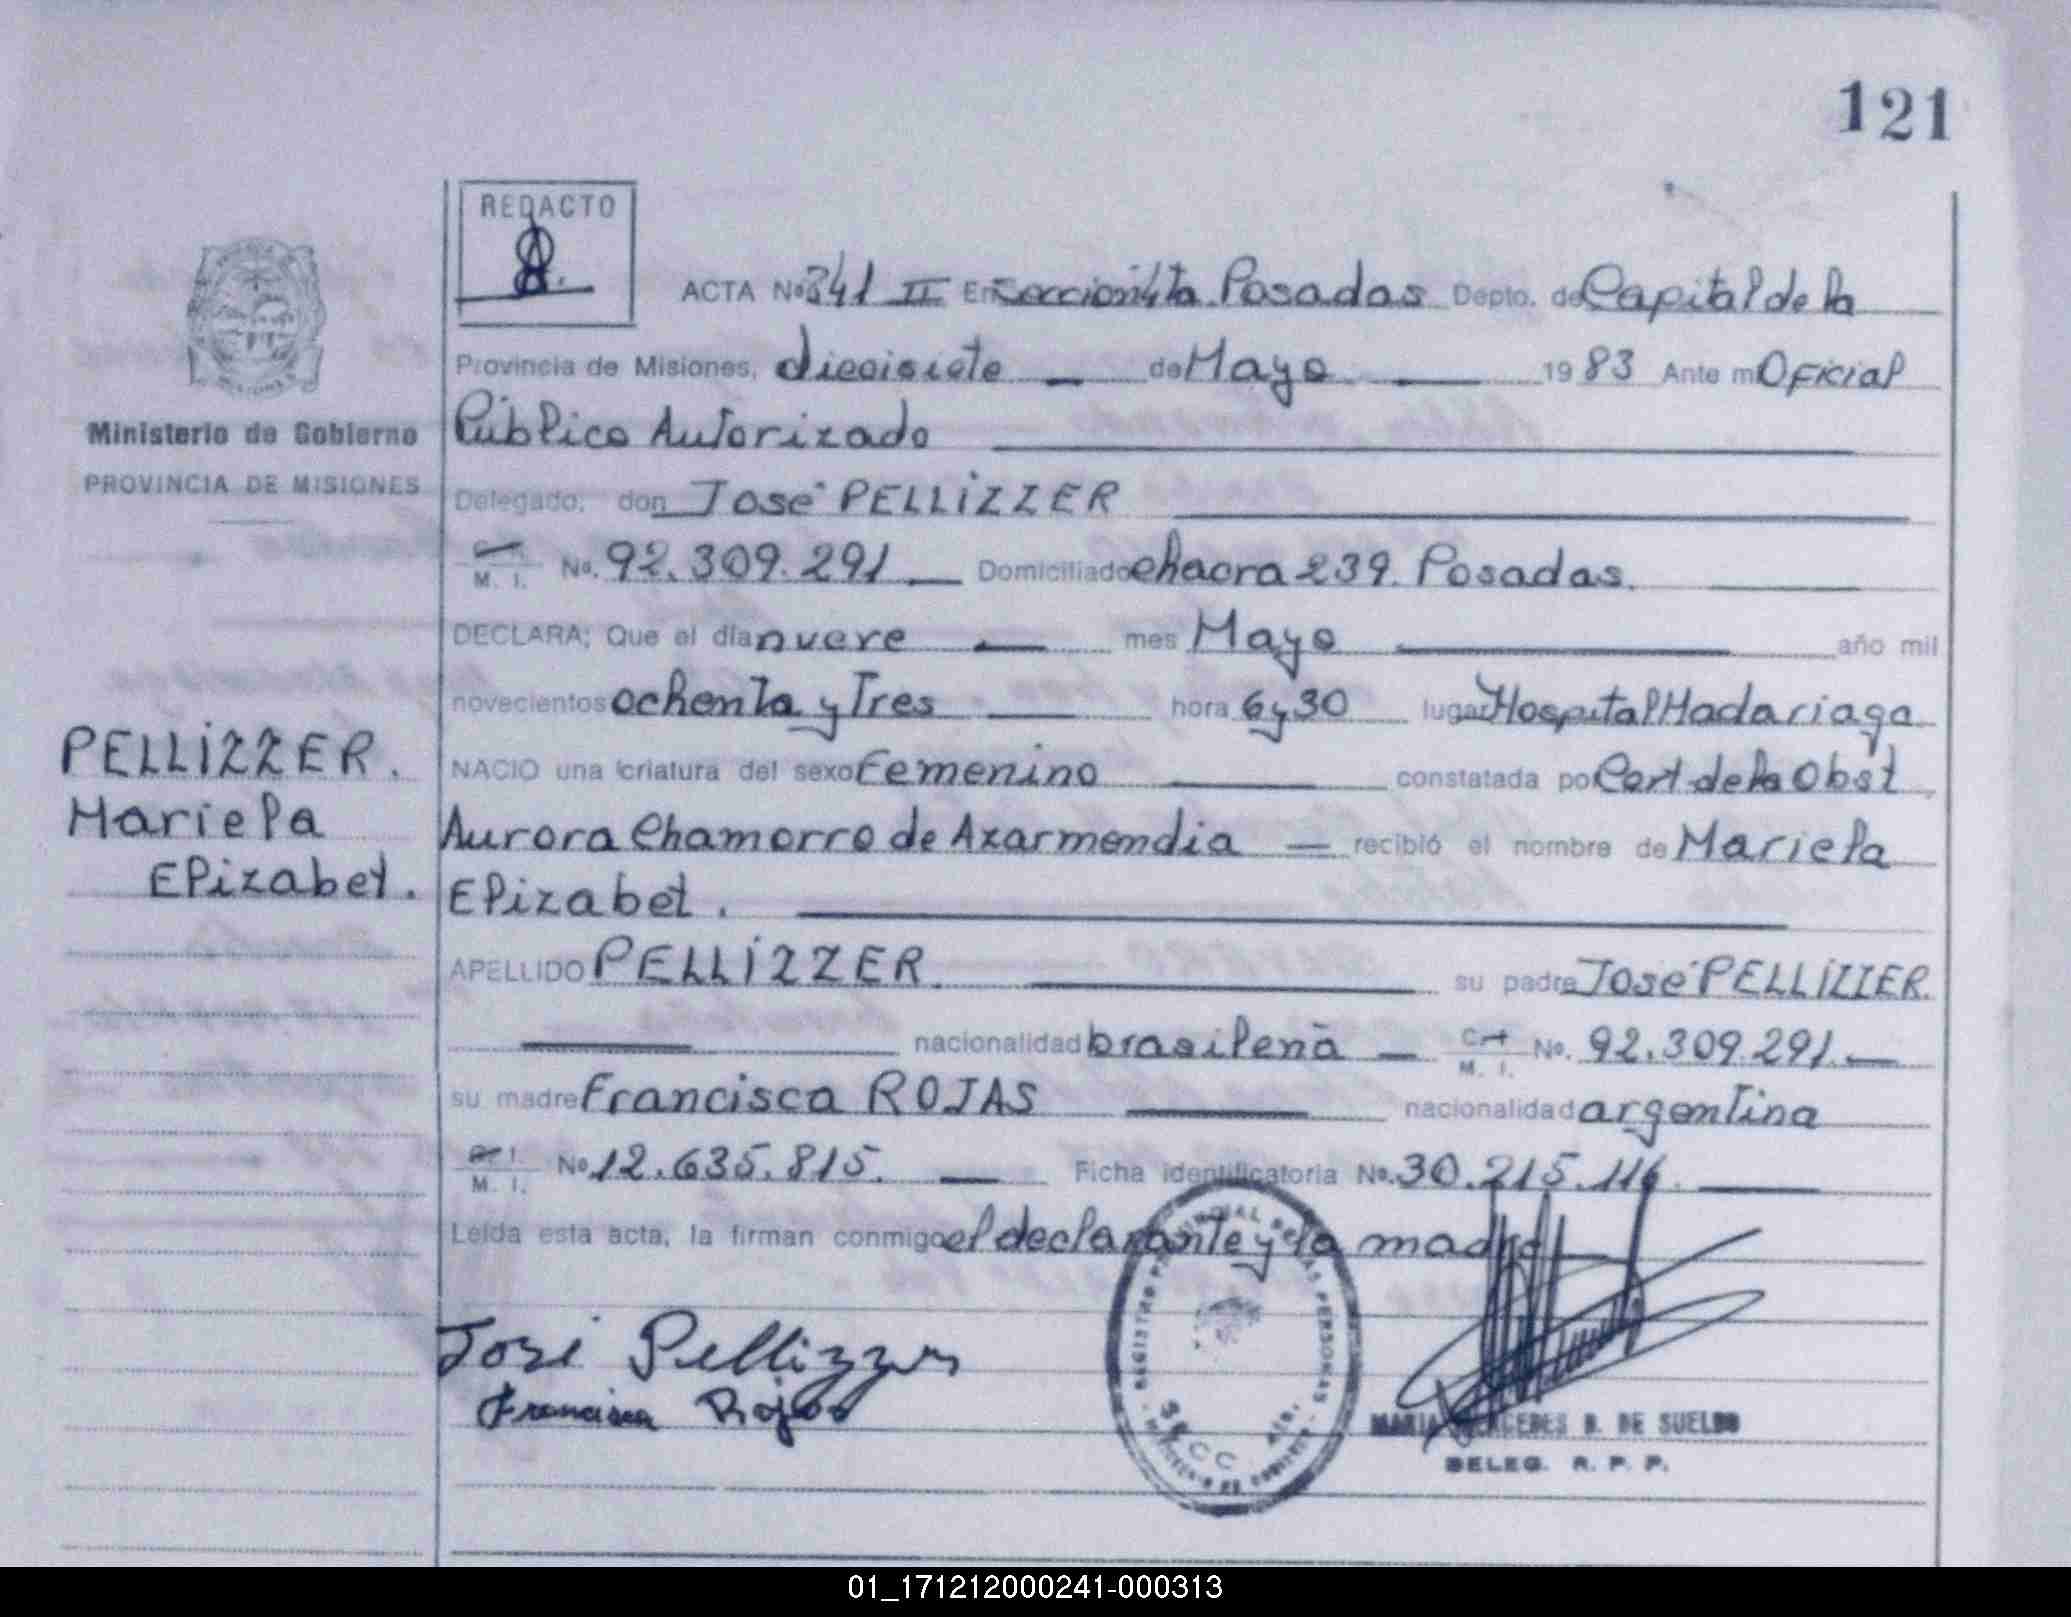 121
REDACTO
ACTA No. 341 II En Seccion 4ta Posadas Depto. de Capital de la
Provincia de Misiones, diecisiete de Mayo 1983 Ante mi Oficial
Público Autorizado
Ministerio de Gobierno
PROVINCIA DE MISIONES
Delegado, don José PELLIZZER
M. I. No. 92.309.291 Domiciliado chacra 239. Posadas.
DECLARA; Que el día nueve mes Mayo año mil
novecientos ochenta y Tres hora 6 y 30 lugar Hospital Madariaga
NACIO una criatura del sexo Femenino constatada por Cert de la Obst
Aurora Chamorro de Azarmendia recibió el nombre de Mariela
Elizabet.
PELLIZZER.
Mariela
Elizabet.
APELLIDO PELLIZZER. su padre José PELLIZZER.
nacionalidad brasileña C.I. M. I. No. 92.309.291.
su madre Francisca ROJAS nacionalidad argentina
M. I. No. 12.635.815. Ficha identificatoria No. 30.215.116.
Leída esta acta, la firman conmigo el declarante y la madre
José Pellizzer
Francisca Rojas
REGISTRO PROVINCIAL DE LAS PERSONAS
SECC 4ta.
MINISTERIO DE GOBIERNO
MARIA MERCEDES B. DE SUELDO
DELEG. R. P. P.
01_171212000241-000313